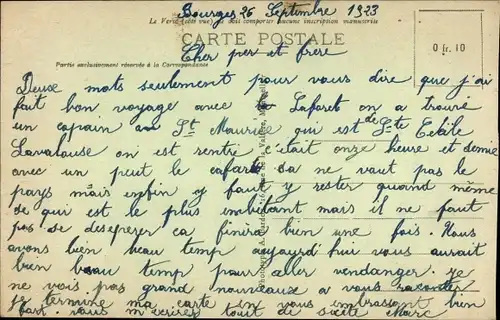 Bourges 26 Septembre 1923
Le Verso (côté vue) ne doit comporter aucune inscription manuscrite
CARTE POSTALE
0 fr. 10
Cher per et frere
Partie exclusivement réservée à la Correspondance
Deux mots seulement pour vous dire que j'ai
fait bon voyage avec Lafaret on a trouvé
un copain a St Maurice qui est de Ste
Lavalouse on est rentré c'était onze heure et demie
avec un peut le cafard sa ne vaut pas le
pays mais enfin y faut y rester quand même
se qui est le plus embetant mais il ne faut
pas se desesperer ca finira bien une fois. Nous
avons bien beau temp aujourd'hui vous aurait
bien beau temp pour aller vendanger. je
ne vois pas grand nouveaux a vous raconter
je termine ma carte en vous embrassant bien
fort. vous m'ecrirez tout de suite Marc